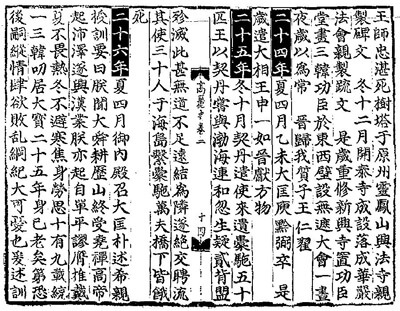 王師忠湛死樹塔于原州靈鳳山興法寺親
製碑文 冬十二月開泰寺成設落成華嚴
法會親製疏文 是歲重修新興寺置功臣
堂畫三韓功臣於東西壁設無遮大會一晝
夜歲以爲常 晉歸我質子王仁翟
二十四年夏四月乙未大匡庾黔弼卒 是
歲遣大相王申一如晉獻方物
二十五年冬十月契丹遣使來遺橐駝五十
高麗史卷二 十四
匹王以契丹嘗與渤海連和忽生疑貳背盟
殄滅此甚無道不足遠結爲隣遂絶交聘流
其使三十人于海島繫橐駝萬夫橋下皆餓
死
二十六年夏四月御內殿召大匡朴述希親
授訓要曰朕聞大舜耕歷山終受堯禪高帝
起沛澤遂興漢業朕亦起自單平謬膺推戴
夏不畏熱冬不避寒焦身勞思十有九載統
一三韓叨居大寶二十五年身已老矣第恐
後嗣縱情肆欲敗亂綱紀大可憂也爰述訓